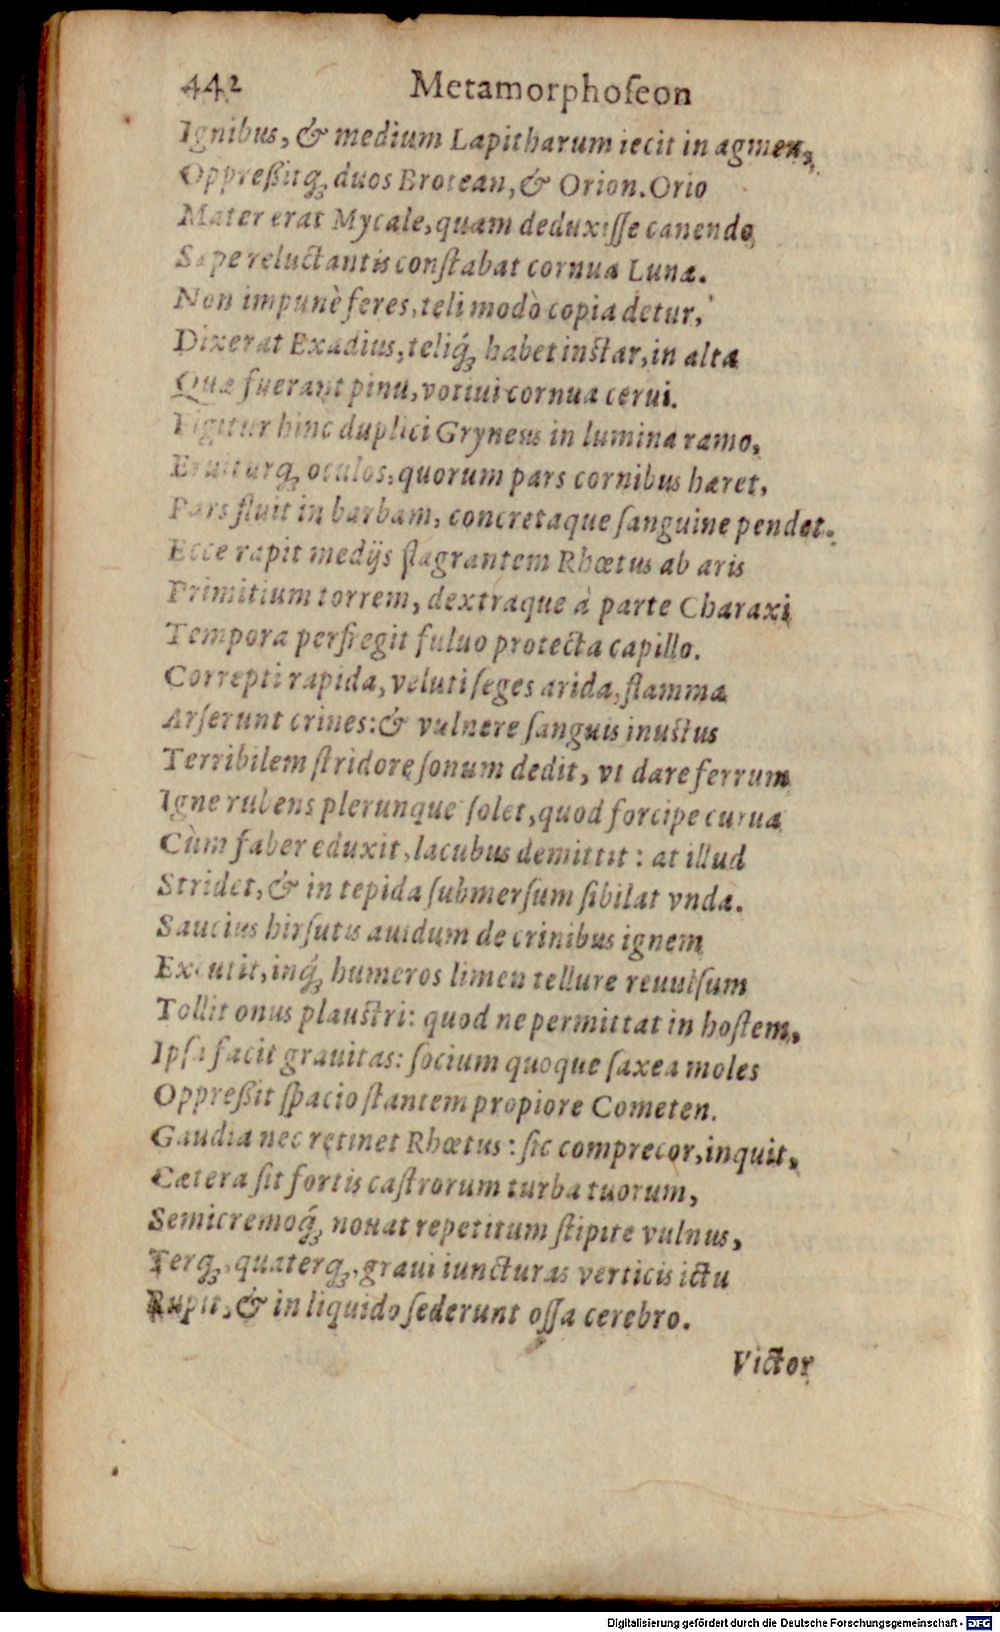 442 Metamorphoſeon
Ignibus, & medium Lapitharum iecit in agmen,
Oppreßitq́; duos Brotean, & Orion. Orio
Mater erat Mycale, quam deduxiſſe canendo
Sæpe reluctantis conſtabat cornua Lunæ.
Non impunè feres, teli modò copia detur,
Dixerat Exadius, teliq́; habet inſtar, in alta
Quæ fuerant pinu, votiui cornua cerui.
Figitur hinc duplici Gryneus in lumina ramo,
Eruiturq́; oculos, quorum pars cornibus hæret,
Pars fluit in barbam, concretaque ſanguine pendet.
Ecce rapit medijs flagrantem Rhœtus ab aris
Primitium torrem, dextraque à parte Charaxi
Tempora perfregit fuluo protecta capillo.
Correpti rapida, veluti ſeges arida, flamma
Arſerunt crines: & vulnere ſanguis inuſtus
Terribilem ſtridore ſonum dedit, vt dare ferrum
Igne rubens plerunque ſolet, quod forcipe curua
Cùm faber eduxit, lacubus demittit: at illud
Stridet, & in tepida ſubmerſum ſibilat vnda.
Saucius hirſutis auidum de crinibus ignem
Excutit, inq́; humeros limen tellure reuulſum
Tollit onus plauſtri: quod ne permittat in hoſtem,
Ipſa facit grauitas: ſocium quoque ſaxea moles
Oppreßit ſpacio ſtantem propiore Cometen.
Gaudia nec retinet Rhœtus: ſic comprecor, inquit,
Cætera ſit fortis caſtrorum turba tuorum,
Semicremoq́; nouat repetitum ſtipite vulnus,
Terq́;, quaterq́;, graui iuncturas verticis ictu
Rupit, & in liquido ſederunt oſſa cerebro.
Victor
Digitalisierung gefördert durch die Deutsche Forschungsgemeinschaft - DFG